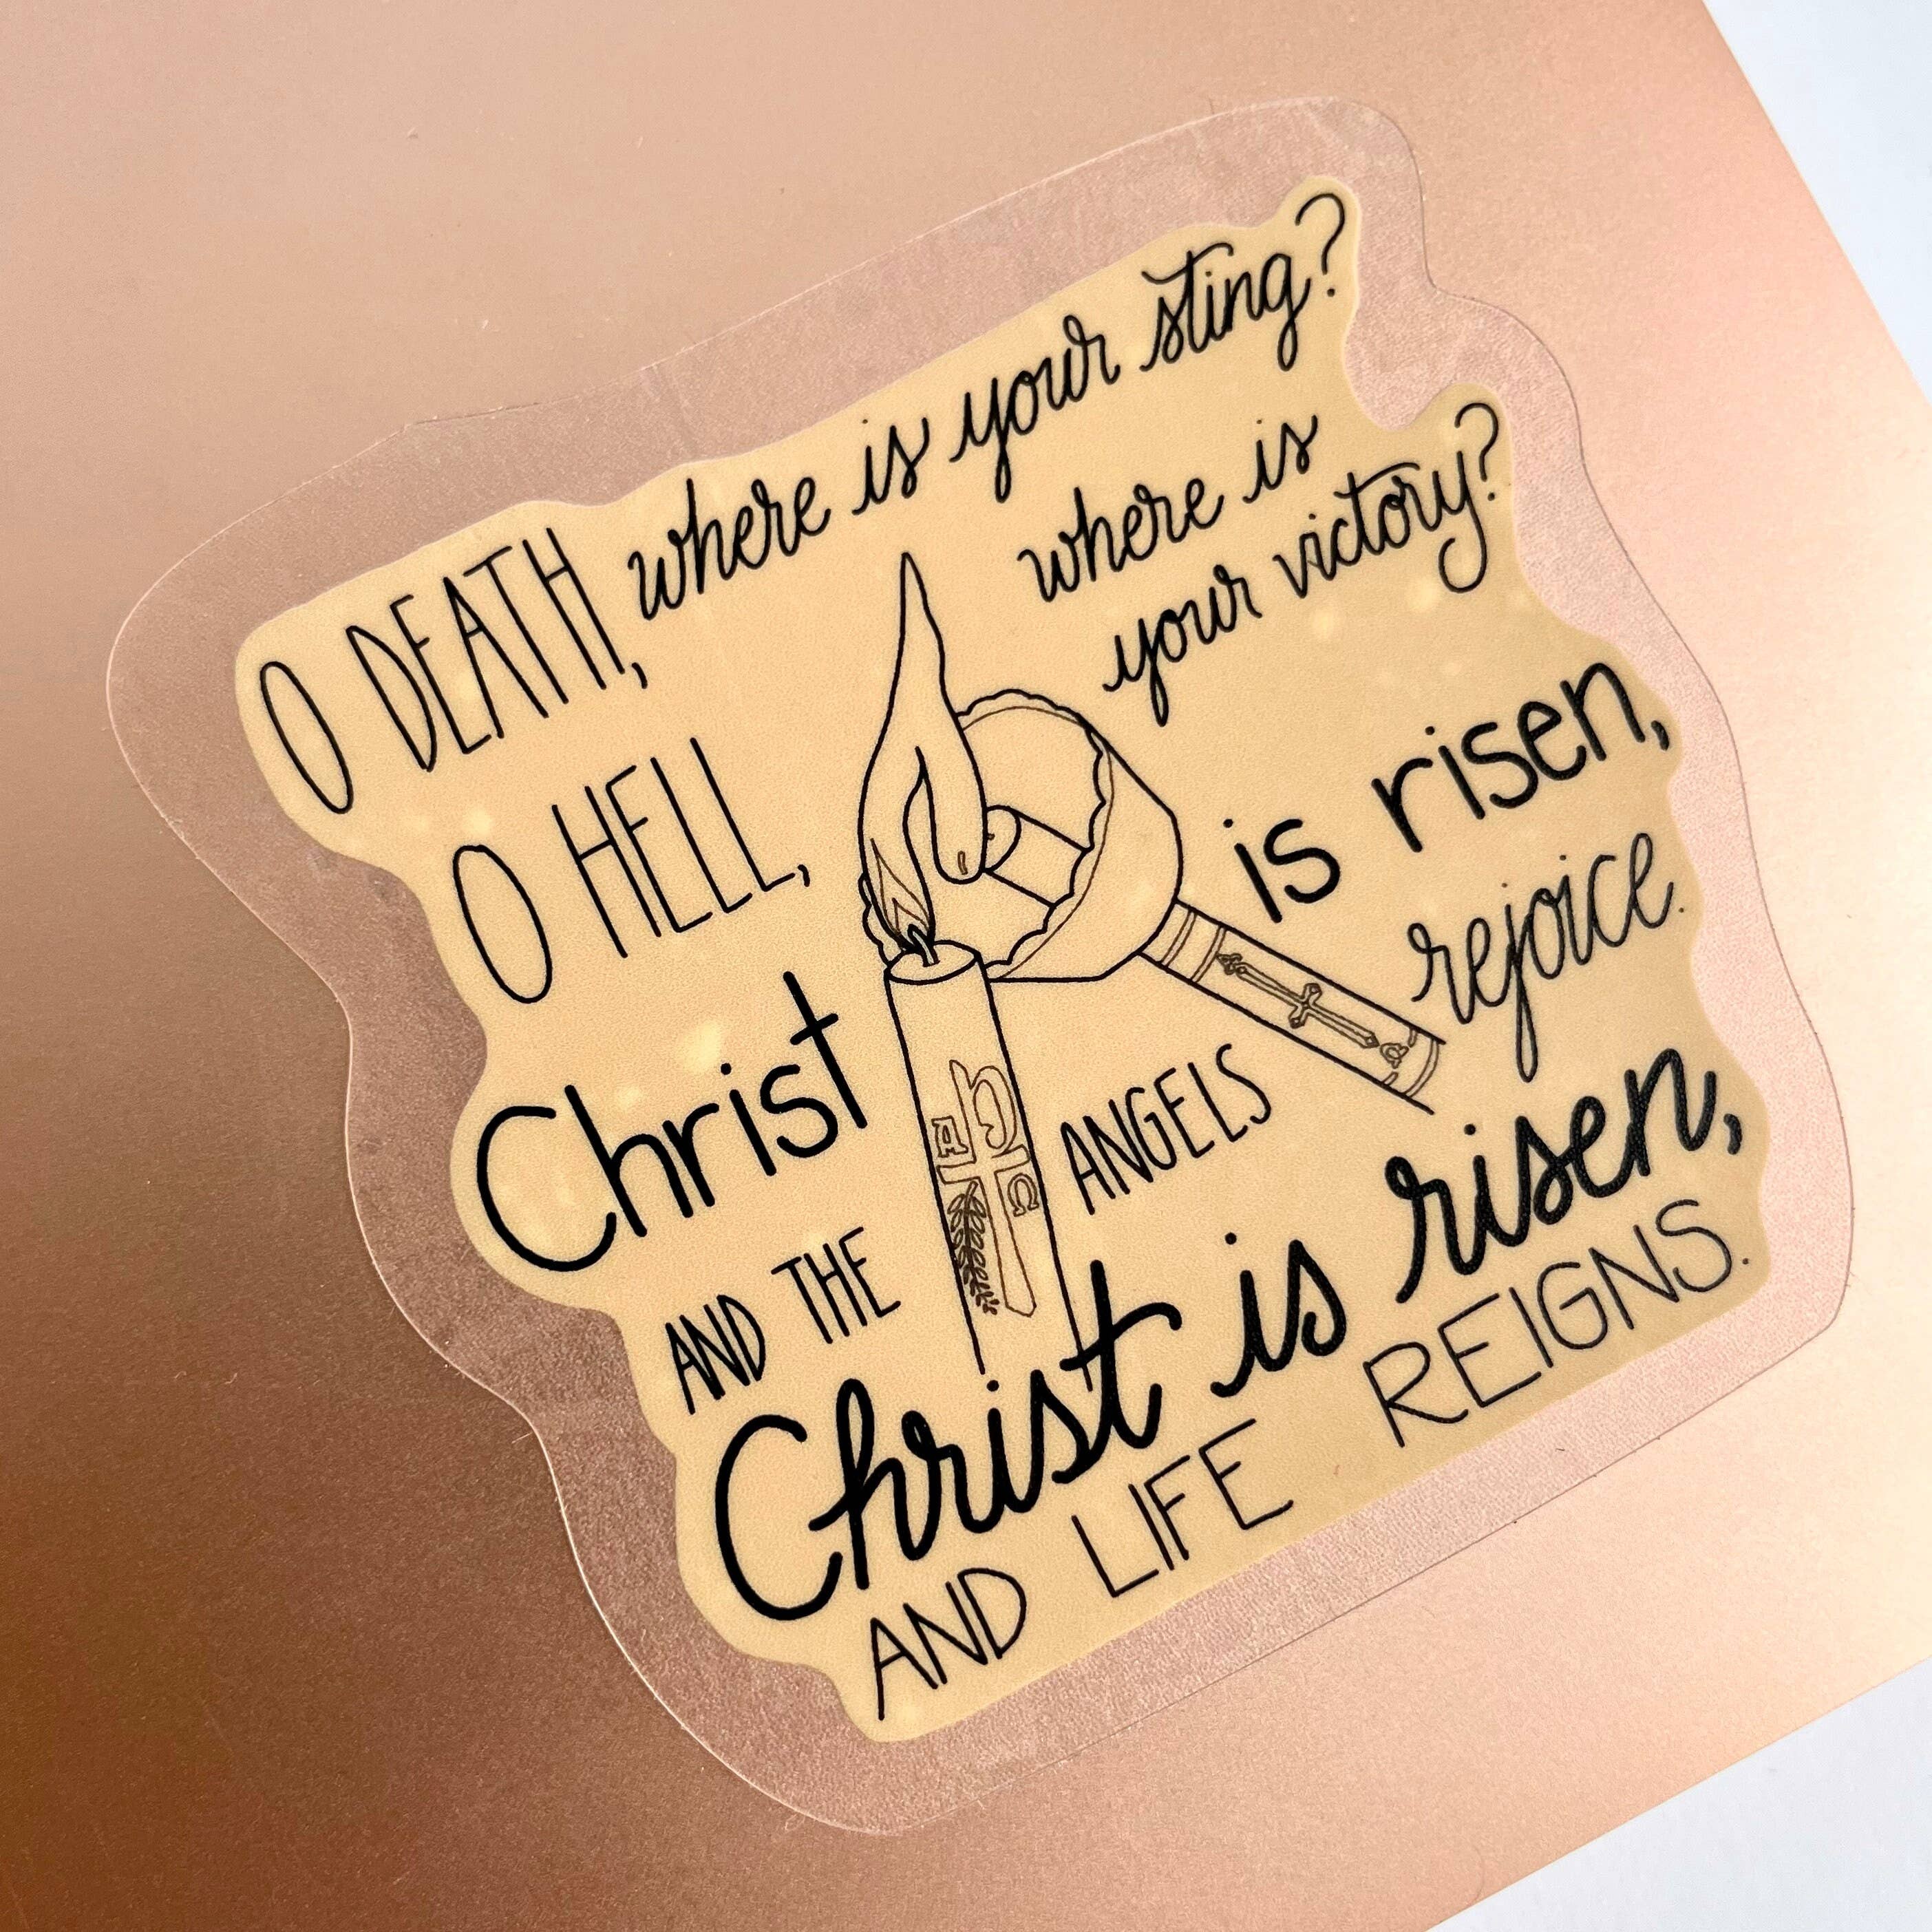 O DEATH, where is your sting?
O HELL, where is
your victory?
Christ is risen,
AND THE ANGELS rejoice.
Christ is risen,
AND LIFE REIGNS.
A
Ω